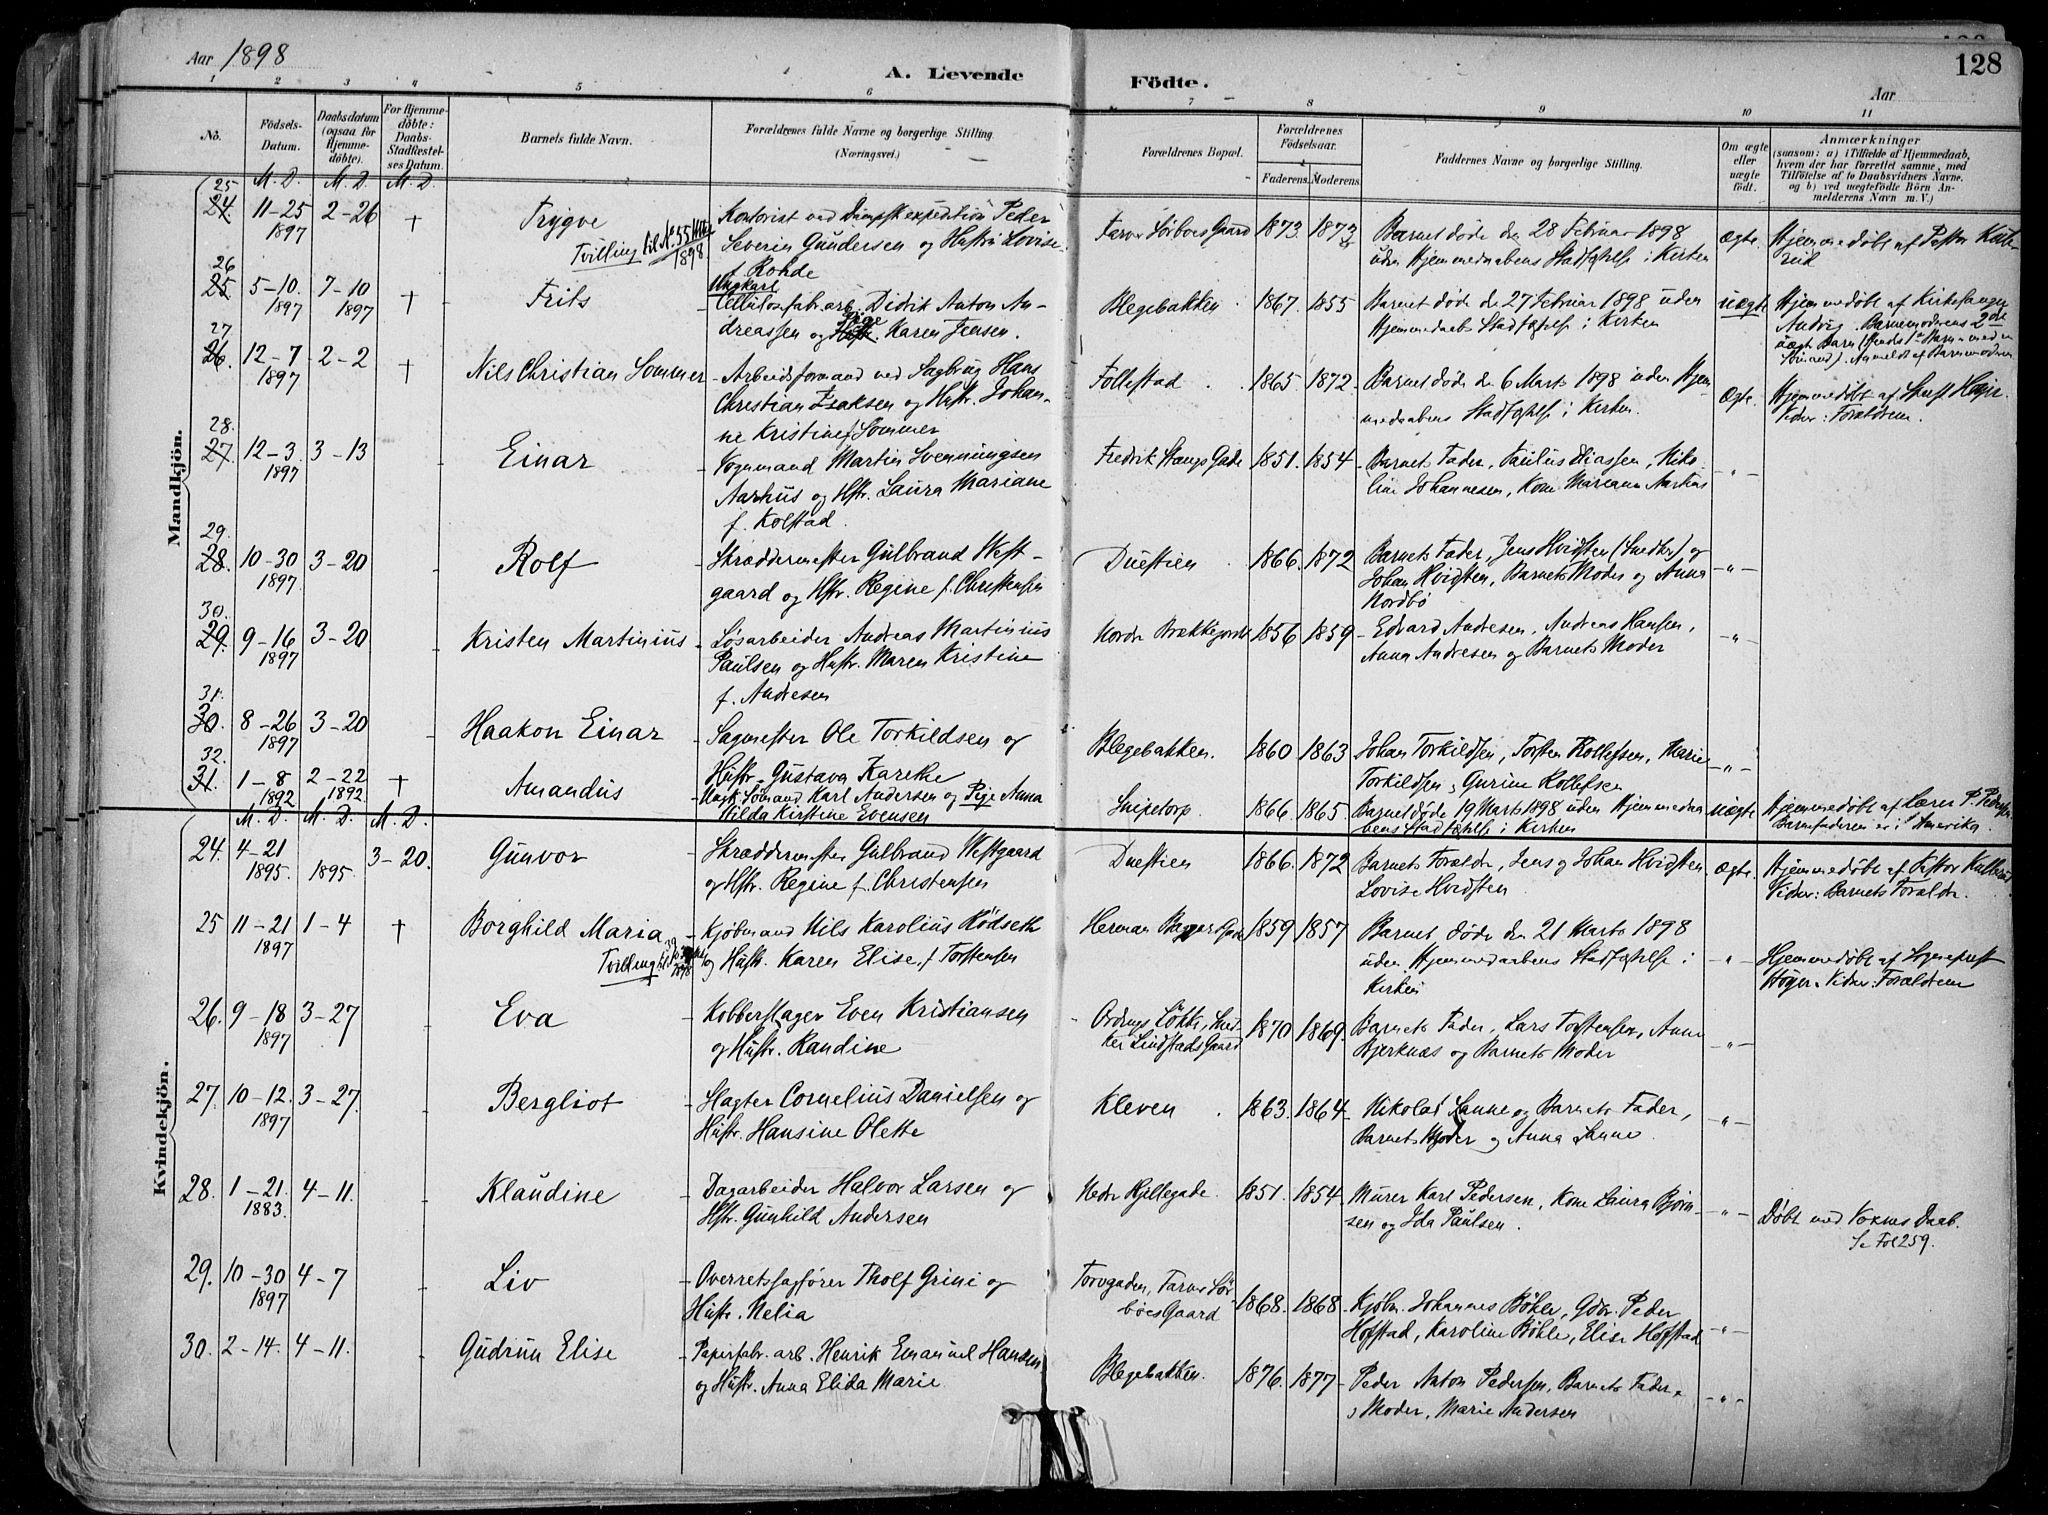 Aar 1898
A. Levende
Födte.
128
Aar
1 2 3 4 5 6 7 8 9 10 11
No.
Födsels-Datum.
Daabsdatum (ogsaa for Hjemmedöbte).
For Hjemmedöbte: Daabs-Stadfæstelses Datum.
Barnets fulde Navn.
Forældrenes fulde Navne og borgerlige Stilling. (Næringsvei.)
Forældrenes Bopæl.
Forældrenes Födselsaar.
Faderens. Moderens.
Faddernes Navne og borgerlige Stilling.
Om ægte eller uægte födt.
Anmærkninger
(saasom: a) i Tilfælde af Hjemmedaab, hvem der har forrettet samme, med Tilföielse af to Daabsvidners Navne, og b) ved uægtefödte Börn Anmelderens Navn m. V.)
Mandkjön.
M. D. M. D. M. D.
25
24. 11-25 1897 2-26 + Trygve
Tvilling til No. 55 1898
Kontorist ved Dampsk.expedition Peder
Severin Gundersen og Hustru Lovise
f. Rohde
Farver Sørboes Gaard 1873. 1873
Barnet døde den 28 Februar 1898
uden Hjemmedaabens Stadfæstelse i Kirken
Ægte. Hjemmedøbt af Pastor
26
25. 5-10. 1897 7-10 1897 + Frits
Ungkarl
Cellulosefabr.arb. Didrik Anton An-
dreassen og Pige Karen Jensen.
Blegebakken 1867. 1855
Barnet døde d. 27 Februar 1898 uden
Hjemmedaabs Stadfæstelse i Kirken
uægte Hjemmedøbt af Kirkesanger
Andvig. Barnemoderens 2det
uægte Barn
Anmeldt af Barnemoderen
27
26. 12-7 1897 2-2 + Nils Christian Sommer
Arbeidsformand ved Sagbrug Hans
Christian Isaksen og Hustr. Johan-
ne Kristine f. Sommer
Follestad. 1865 1872.
Barnet døde d. 6 Marts 1898 uden Hjem-
medaabens Stadfæstelse i Kirken.
Ægte. Hjemmedøbt af
Vidner: Forældrene.
28.
27. 12-3 1897 3-13 Einar
Vognmand Martin Svenningsen
Aarhus og Hstr. Laura Mariane
f. Kolstad.
Fredrik Stangs Gade 1851. 1854
Barnets Fader, Paulus Eliassen, Niko-
line Johannesen, Kone Mariane Aarhus
-"-
29.
28. 10-30 1897 3-20 Rolf
Skræddermester Gulbrand West-
gaard og Hstr. Regine f. Christensen
Duestien 1866. 1872
Barnets Fader, Jens Hvidsten (Snedker) og
Johan Hvidsten, Barnets Moder og Anna
Nordbö
-"-
30.
29. 9-16 1897 3-20 Kristen Martinius
Løsarbeider Andreas Martinius
Paulsen og Hustr. Maren Kristine
f. Andresen
Nordr. Brækkegade 1856 1859
Edvard Andresen, Andreas Hansen,
Anna Andresen og Barnets Moder
-"-
31.
30. 8-26 1897 3-20 Haakon Einar
Sagmester Ole Torkildsen og
Hustr. Gustava Karethe
Blegebakken. 1860 1863
Johan Torkildsen, Torsten Rollefsen, Marie
Torkildsen, Gurine Rollefsen
-"-
32.
31. 1-8 1892 2-22 1892 + Amandus
Ungk. Sømand Karl Andersen og Pige Anna
Hilda Kirstine Evensen
Snipetorp 1866. 1865.
Barnet døde 19 Marts 1898 uden Hjemmedaa-
bens Stadfæstelse i Kirken
uægte Hjemmedøbt af Lærer P. Pedersen.
Barnefaderen er i Amerika.
Kvindekjön.
M. D. M. D. M. D.
24. 4-21 1895. 1895. 3-20. Gunvor
Skræddermester Gulbrand Westgaard
og Hstr. Regine f. Christensen
Duestien 1866. 1872
Barnets Forældre, Jens og Johan Hvidsten
Lovise Hvidsten
Ægte. Hjemmedøbt af Pastor
Vidner: Barnets Forældre.
25 11-21 1897 1-4 + Borghild Maria
Tvilling til 1898
Kjøbmand Nils Karolius Rödseth
og Hustr. Karen Elise, f. Torstensen
Herman Bagges Gade 1859 1857
Barnet døde den 21 Marts 1898
uden Hjemmedaabens Stadfæstelse i
Kirken
-"- Hjemmedøbt af Sogneprest
Höyer. Vidner: Forældrene
26. 9-18 1897 3-27 Eva
Kobberslager Even Kristiansen
og Hustr. Randine
Ordrups Løkke, Sned-
ker Lindstads Gaard 1870 1869.
Barnets Fader, Lars Torstensen, Anne
Bjerknæs og Barnets Moder
-"-
27. 10-12. 1897 3-27. Bergliot
Slagter Cornelius Danielsen og
Hustr. Hansine Olette
Kleven 1863. 1864
Nikolai Sanne og Barnets Fader,
Barnets Moder og Anna Sanne.
-"-
28. 1-21. 1883. 4-11. Klaudine
Dagarbeider Halvor Larsen og
Hstr. Gunhild Andersen
Nedr Hjellegade. 1851. 1854
Murer Karl Pedersen, Kone Laura Bjørn-
sen og Ida Paulsen.
-"- Døbt med Voxnes Daab.
Se Fol 259.
29. 10-30 1897 4-7 Liv
Overretssagfører Tholf Grini og
Hustr. Nelia
Torvgaden, Farver Sör-
böes Gaard 1868. 1868
Kjøbm. Johannes Bøhle, Gdbr. Peder
Hofstad, Karoline Bøhle, Elise Hofstad
-"-
30. 2-14. 4-11. Gudrun Elise
Papirfabr. arb. Henrik Emanuel Hansen
og Hustr. Anna Elida Marie
Blegebakken. 1876. 1877
Peder Anton Pedersen, Barnets Fader
Moder, Marie Andersen
-"-